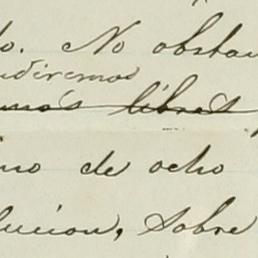 do. No obsta
ndiremos
más libres
ino de ocho
lucion, sobre